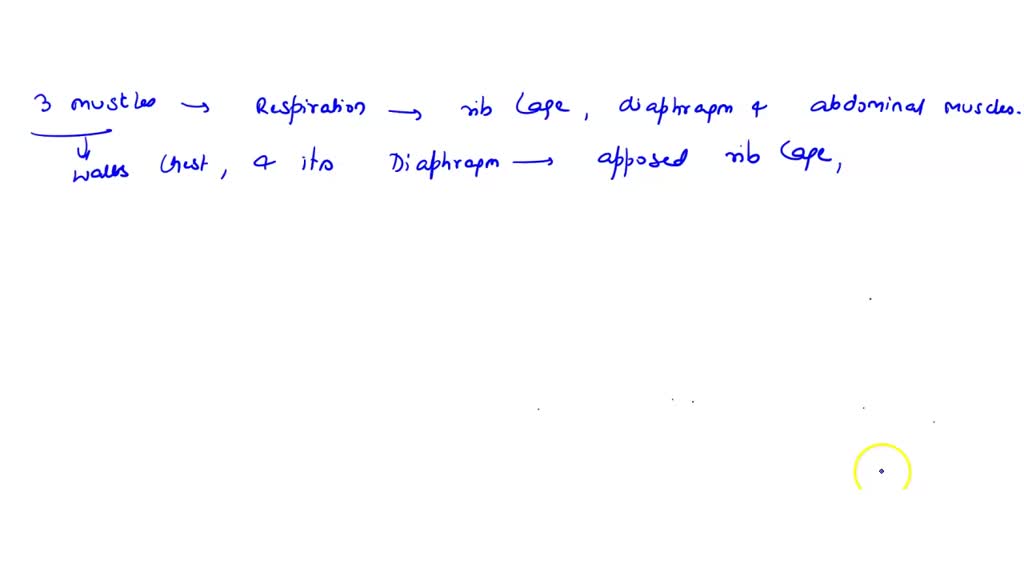 3 mustles → Respiration → rib Cage, diaphragm & abdominal muscles.
walls Chest, & its Diaphragm → apposed rib Cage,